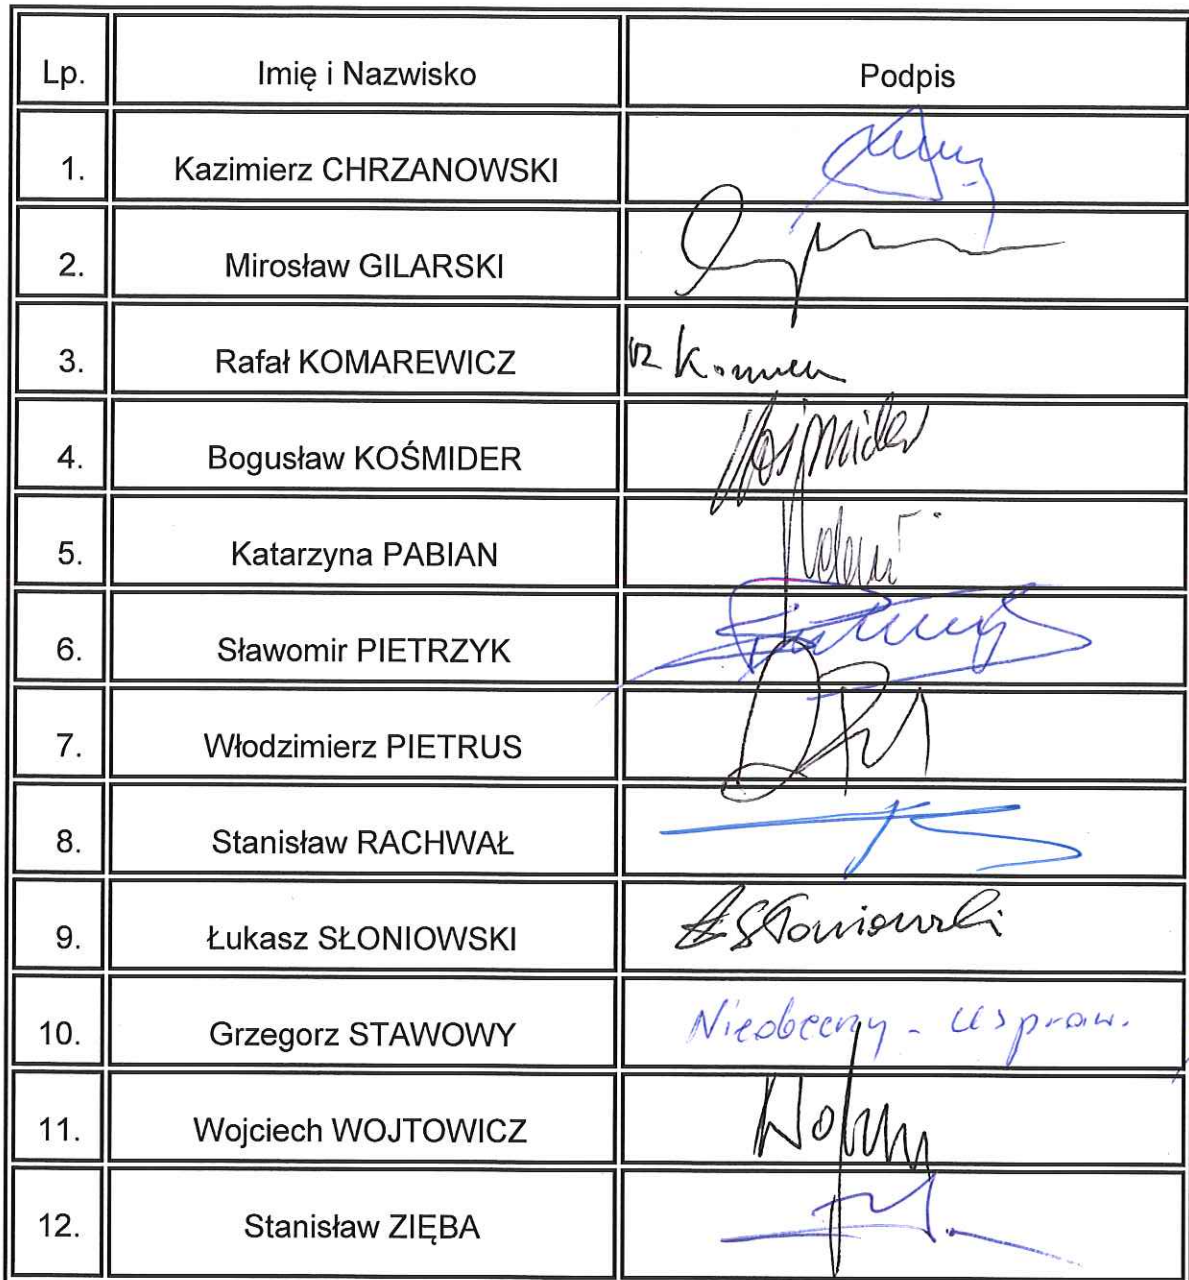 Lp. Imię i Nazwisko Podpis
1. Kazimierz CHRZANOWSKI
2. Mirosław GILARSKI
3. Rafał KOMAREWICZ
4. Bogusław KOŚMIDER Kośmider
5. Katarzyna PABIAN
6. Sławomir PIETRZYK
7. Włodzimierz PIETRUS
8. Stanisław RACHWAŁ
9. Łukasz SŁONIOWSKI Słoniowski
10. Grzegorz STAWOWY Nieobecny - uspraw.
11. Wojciech WOJTOWICZ
12. Stanisław ZIĘBA